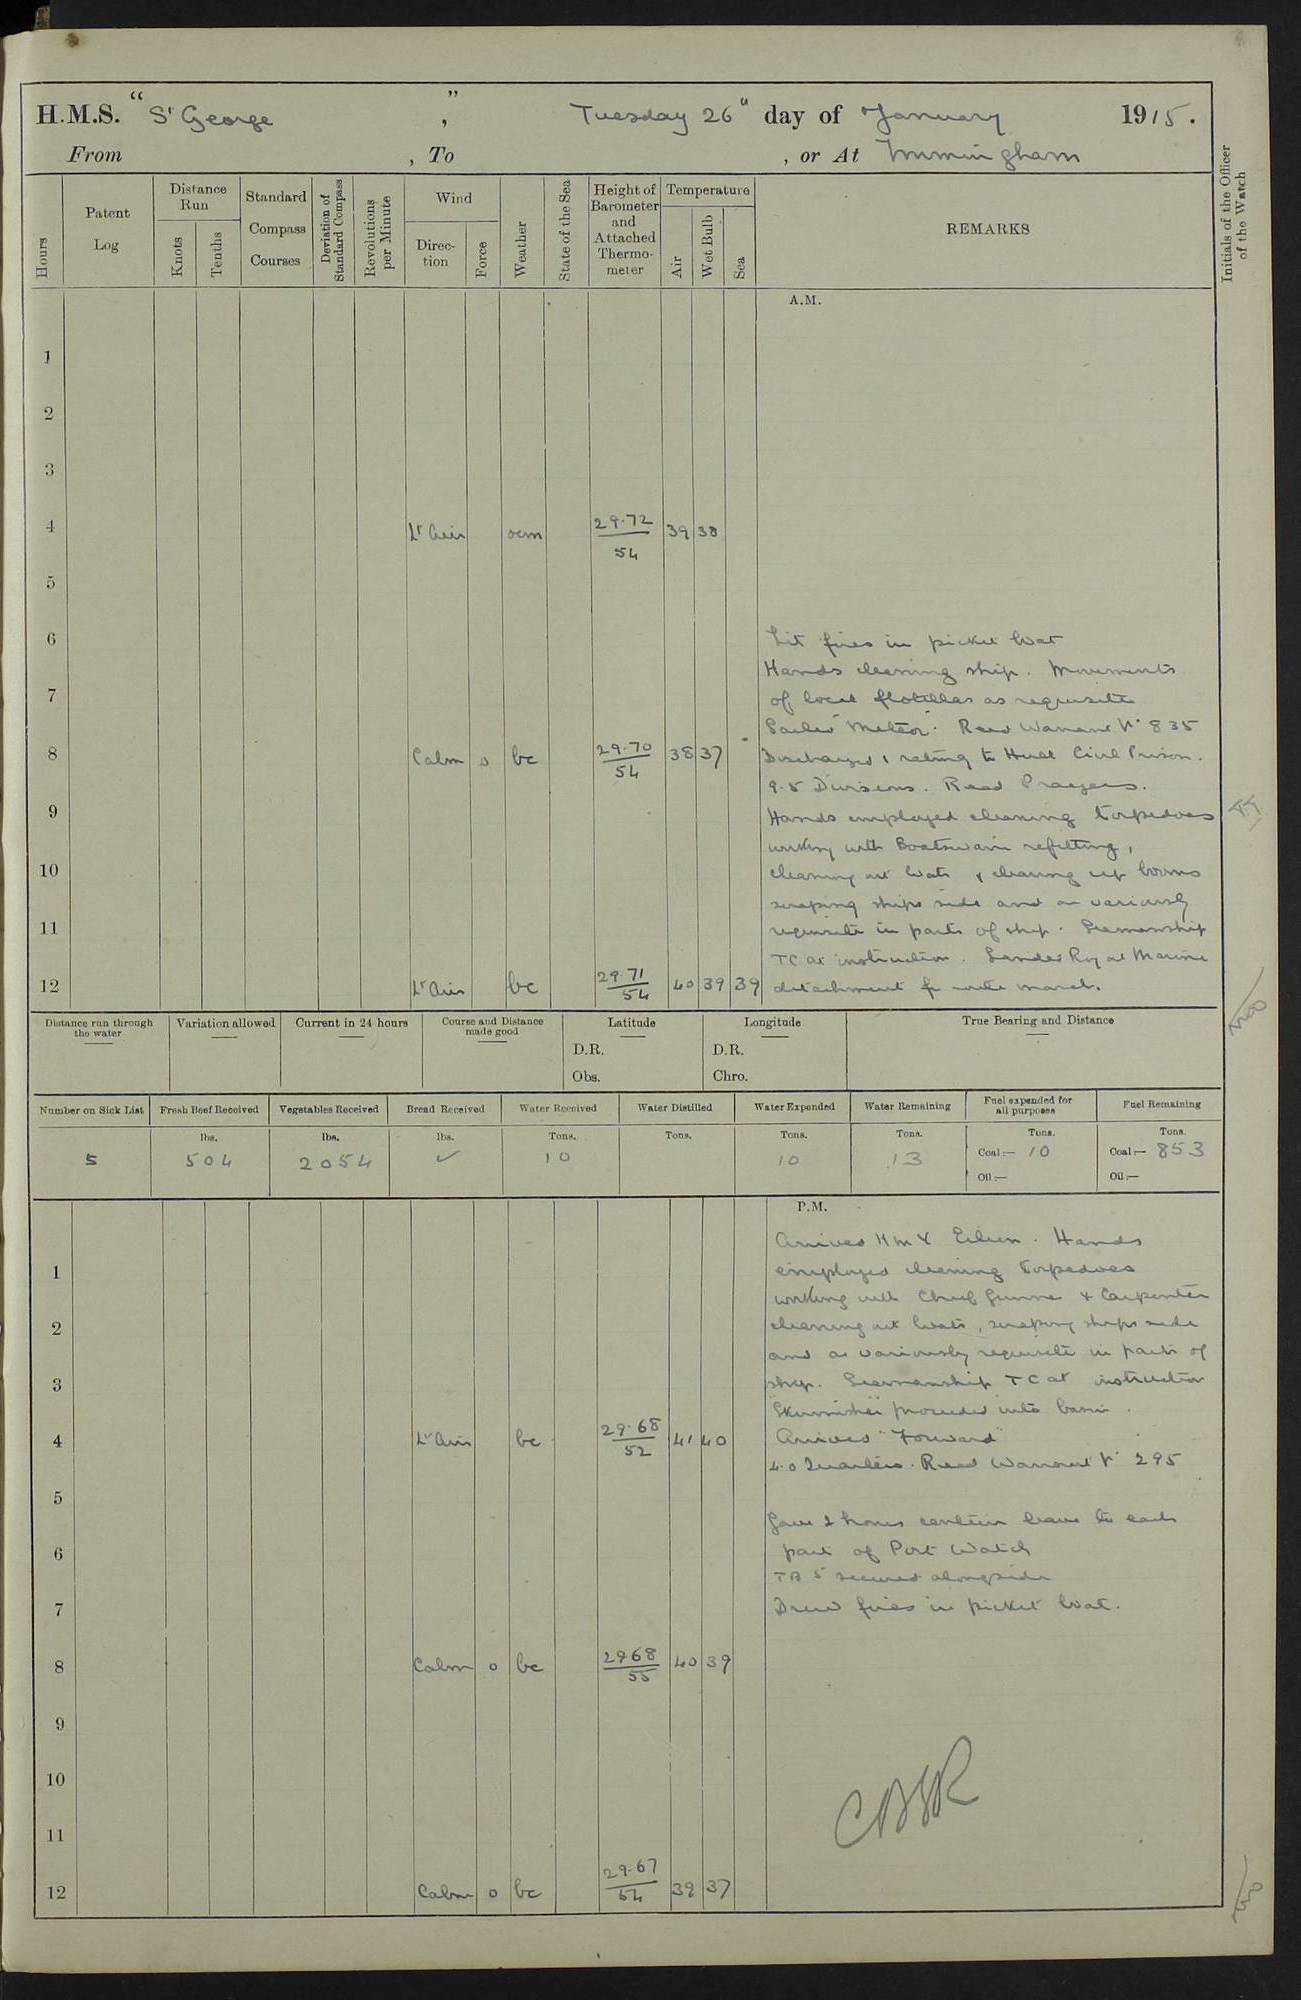 H.M.S. "St George", Tuesday 26th day of January 1915.
From , To , or At Immingham
Hours
Patent Log
Distance Run
Knots
Tenths
Standard Compass Courses
Deviation of Standard Compass
Revolutions per Minute
Wind
Direction
Force
Weather
State of the Sea
Height of Barometer and Attached Thermometer
Temperature
Air
Wet Bulb
Sea
REMARKS
Initials of the Officer of the Watch
A.M.
1
2
3
4 Lt Airs ocm 29.72/54 39 38
5
6
Lit fires in picket boat
Hands cleaning ship. Movements
7
of local flotillas as requisite
Sailed "Meteor". Read Warrant No 835
8 Calm 0 bc 29.70/54 38 37
Discharged 1 rating to Hull Civil Prison.
9.5 Divisions. Read Prayers.
9
Hands employed cleaning torpedoes
working with Boatswain refitting,
10
cleaning out boats & clearing up booms
scraping ships side and as variously
11
requisite in parts of ship. Seamanship
TC at instruction. Landed Royal Marine
12 Lt Airs bc 29.71/54 40 39 39
detachment for route march.
Distance run through the water
Variation allowed
Current in 24 hours
Course and Distance made good
Latitude
D.R.
Obs.
Longitude
D.R.
Chro.
True Bearing and Distance
Number on Sick List
Fresh Beef Received
Vegetables Received
Bread Received
Water Received
Water Distilled
Water Expended
Water Remaining
Fuel expended for all purposes
Fuel Remaining
lbs. lbs. lbs. Tons. Tons. Tons. Tons. Tons. Tons.
5 504 2054 ✓ 10 10 13 Coal:— 10 Coal:— 853
Oil:— Oil:—
P.M.
Arrived HMY Eileen. Hands
1
employed cleaning torpedoes
working with Chief Gunner & Carpenter
2
cleaning out boats, scraping ships side
and as variously requisite in parts of
3
ship. Seamanship TC at instruction
"Skirmisher" proceeded into basin.
4 Lt Airs bc 29.68/52 41 40
Arrived "Forward"
4.0 Quarters. Read Warrant No 295
5
Gave 2 hours canteen leave to each
6
part of Port Watch
TB 5 secured alongside
7
Drew fires in picket boat.
8 Calm 0 bc 2968/55 40 39
9
10
11
12 Calm 0 bc 29.67/54 39 37